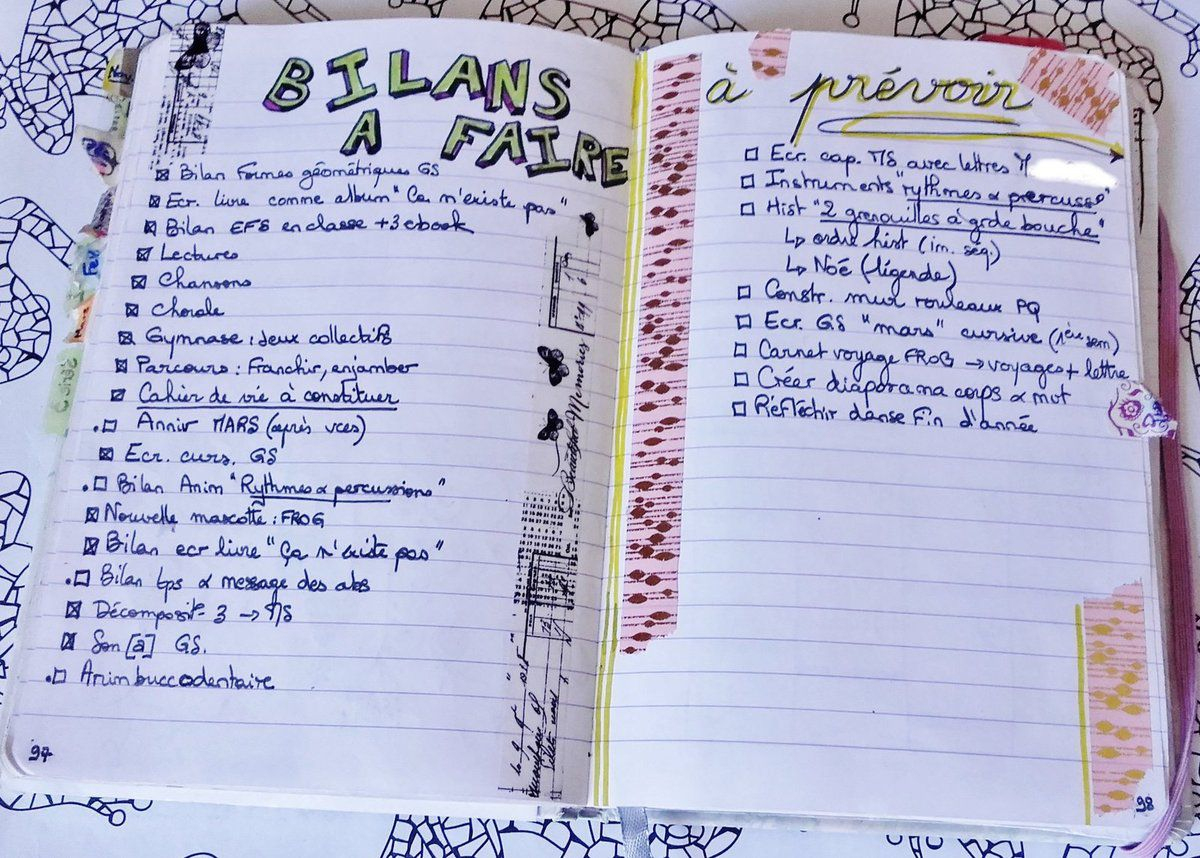 BILANS
A FAIRE
☒ Bilan Formes géométriques GS
☒ Ecr. livre comme album "Ça n'existe pas"
☒ Bilan EFS en classe + 3 ebook
☑ Lectures
☒ Chansons
☒ Chorale
☒ Gymnase : jeux collectifs
☒ Parcours : Franchir, enjamber
☒ Cahier de vie à constituer
.☐ Anniv MARS (après vces)
☒ Ecr. curs. GS
.☐ Bilan Anim "Rythmes & percussions"
☒ Nouvelle mascotte : FROG
☒ Bilan ecr livre "Ça n'existe pas"
.☐ Bilan tps & message des abs
☒ Décomposit° 3 → MS
☒ Son [a] GS.
.☐ Anim buccodentaire
97
à prévoir
☐ Ecr. cap. MS avec lettres
☐ Instruments "rythmes & percuss°"
☐ Hist "2 grenouilles à grde bouche"
↳ ordre hist (im. séq.)
↳ Noé (légende)
☐ Constr. mur rouleaux PQ
☐ Ecr. GS "mars" cursive (1ère sem)
☐ Carnet voyage FROG → voyages + lettre
☐ Créer diaporama corps & mot
☐ Réfléchir danse Fin d'année
98
Nov
Fev
Mars
Beautiful Memories